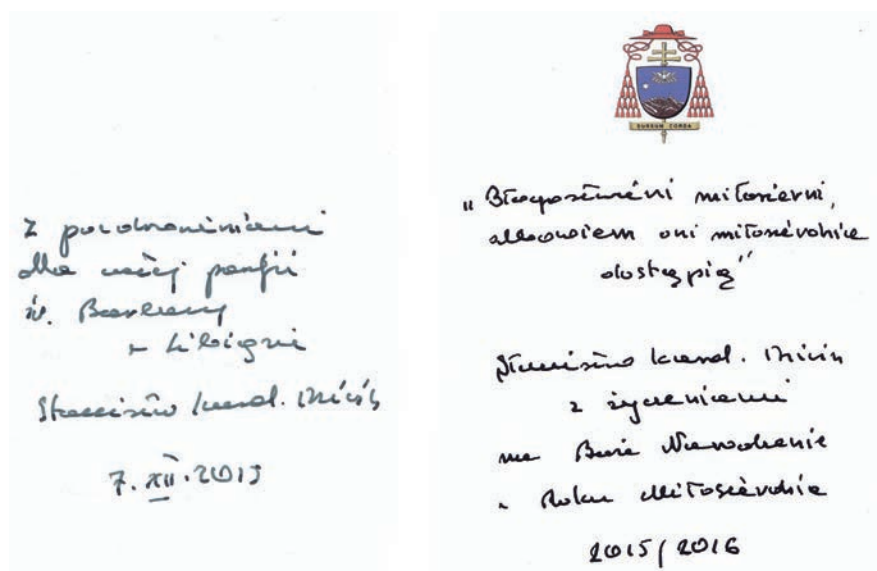 Z pozdrowieniami
dla całej parafii
św. Barbary
w Libiążu
Stanisław kard. Dziwisz
7. XII. 2015
SURSUM CORDA
„Błogosławieni miłosierni,
albowiem oni miłosierdzia
dostąpią”
Stanisław kard. Dziwisz
z życzeniami
na Boże Narodzenie
w Roku Miłosierdzia
2015/2016